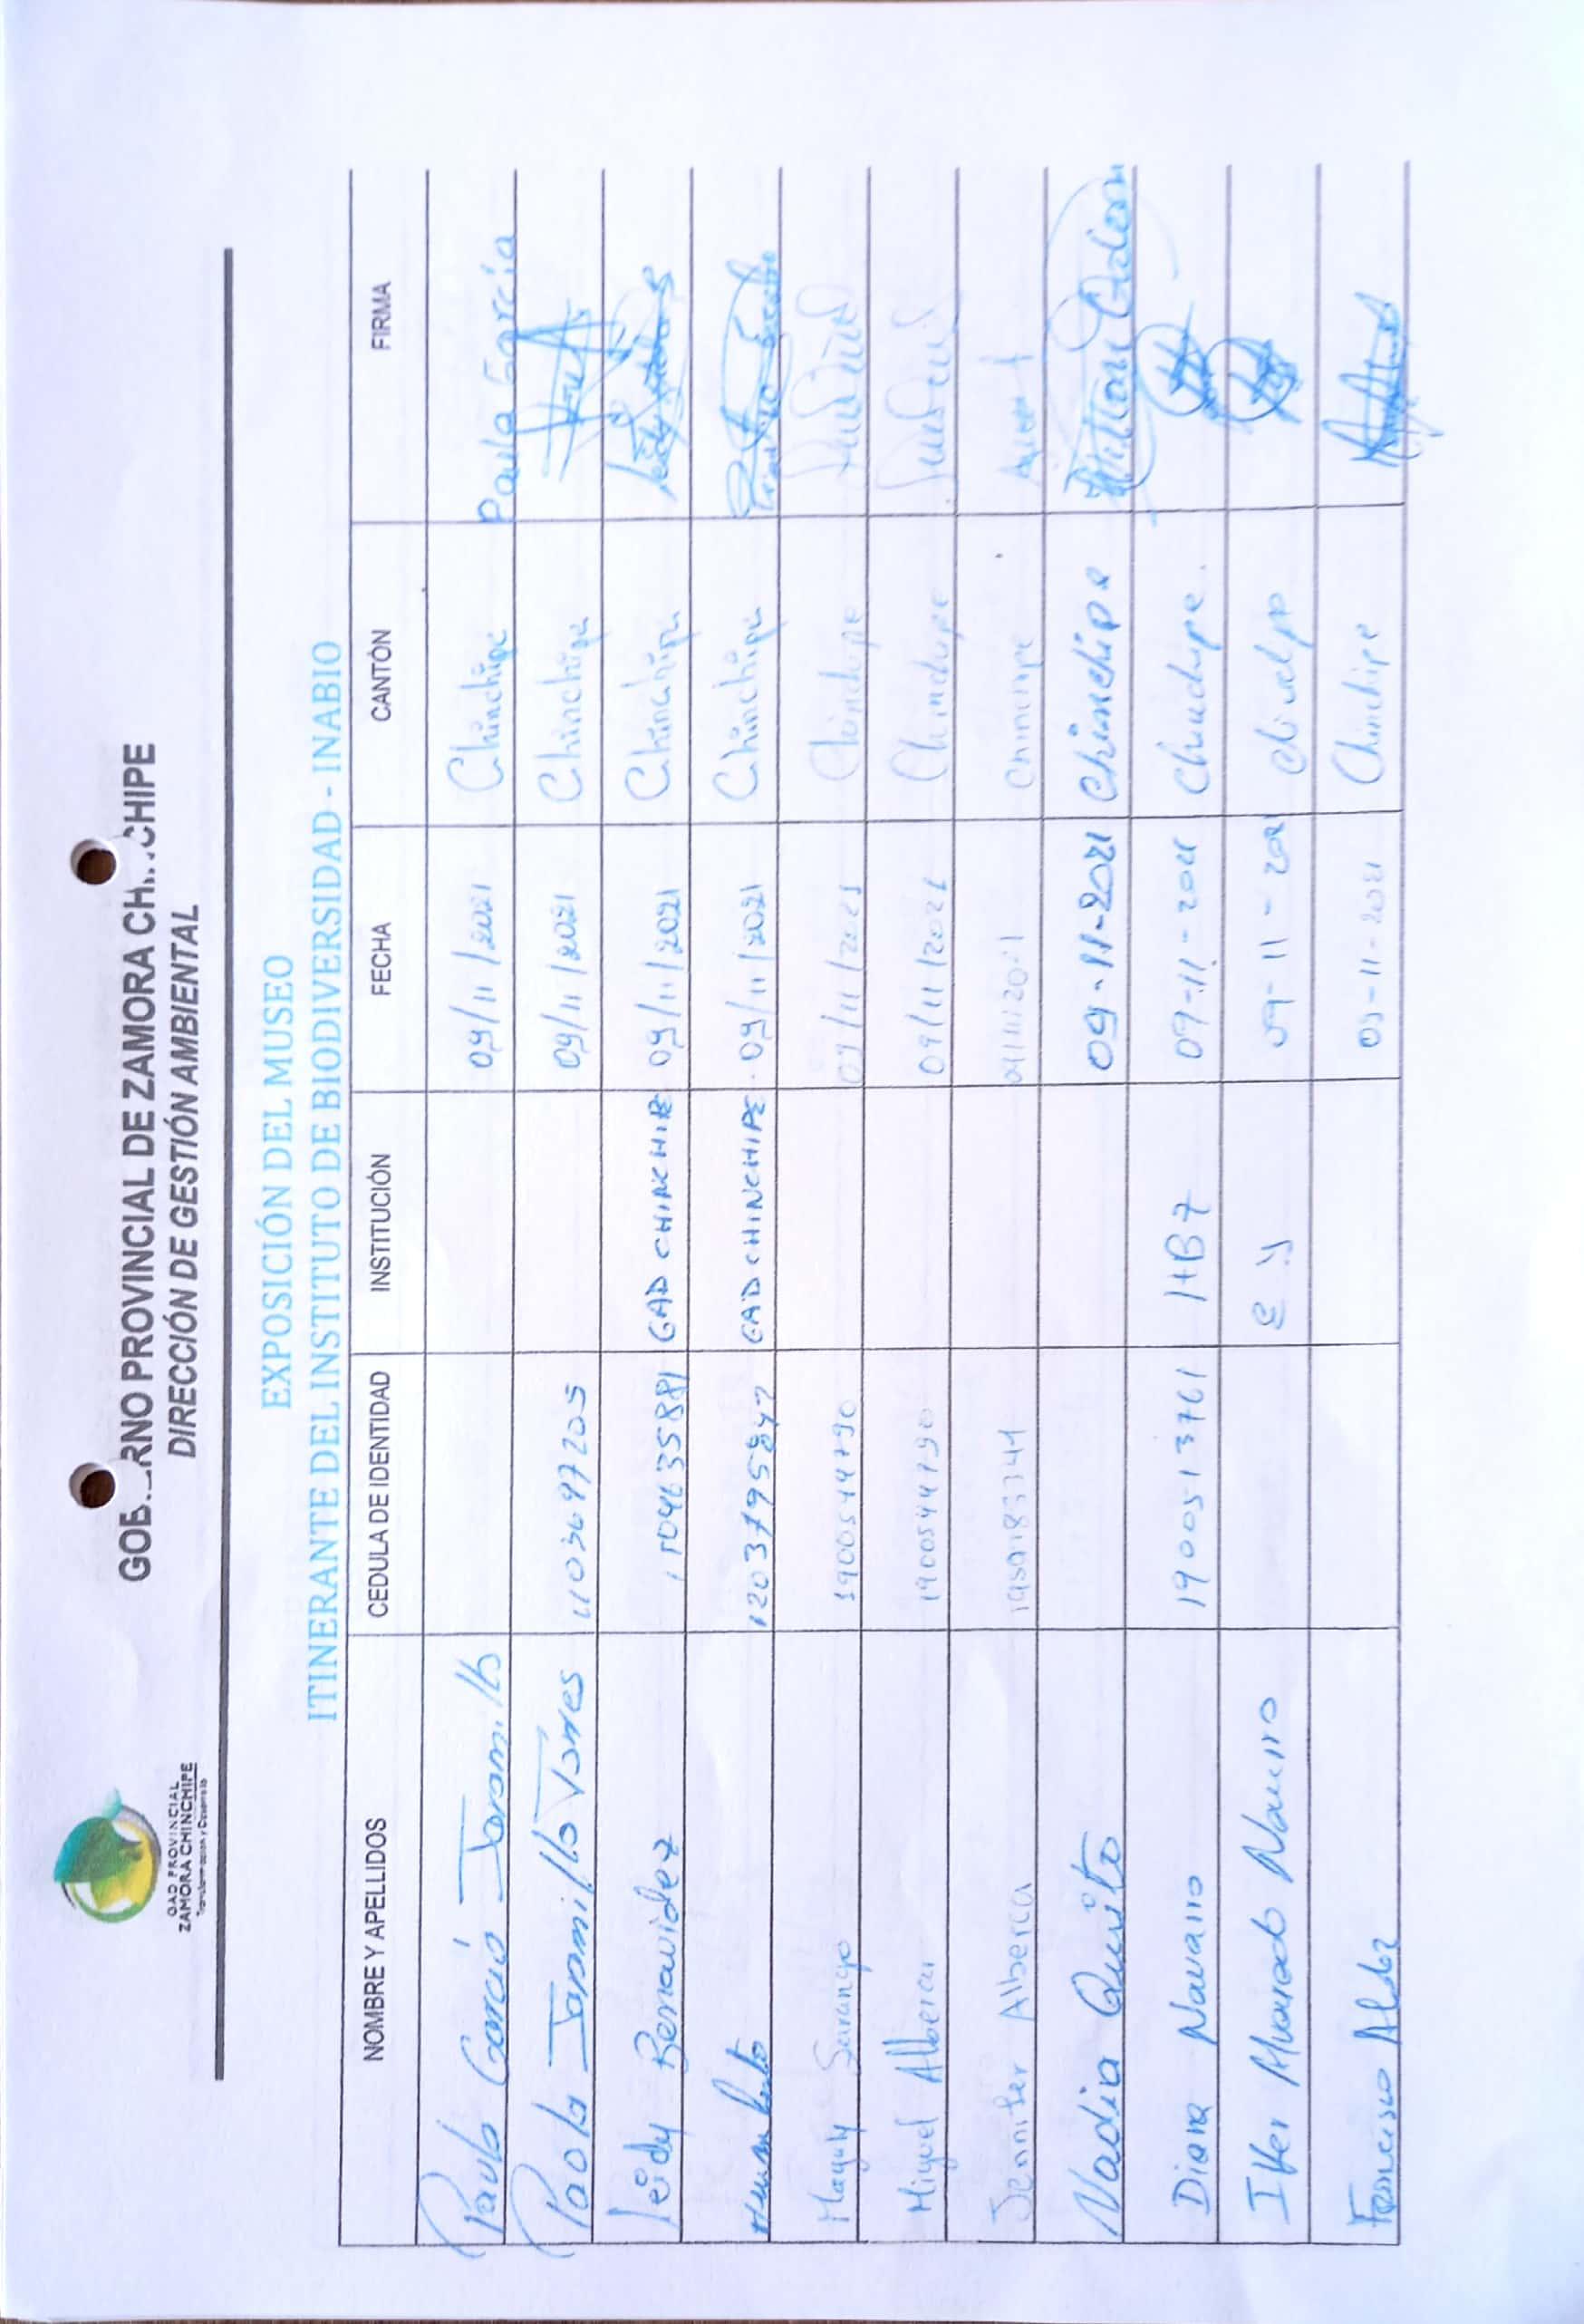 GAD PROVINCIAL
ZAMORA CHINCHIPE
PROVINCIAL DE ZAMORA
DIRECCIÓN DE GESTIÓN AMBIENTAL
EXPOSICIÓN DEL MUSEO
ITINERANTE DEL INSTITUTO DE BIODIVERSIDAD - INABIO
NOMBRE Y APELLIDOS CEDULA DE IDENTIDAD INSTITUCIÓN FECHA CANTÓN FIRMA
Paula García Jaramillo 09/11/2021 Chinchipe Paula García
Paola Jaramillo Torres 1103697205 09/11/2021 Chinchipe
Leidy Benavidez 1104635881 GAD CHINCHIPE 09/11/2021 Chinchipe
GAD CHINCHIPE 09/11/2021 Chinchipe
Magaly Sarango Chinchipe
Miguel Alberca 1900544790 09/11/2021 Chinchipe
Jennifer Alberca Chinchipe
Nadia Quito 09-11-2021 Chinchipe
Diana Navarro 1900513761 HB7 09-11-2021 Chinchipe
Iker Alvarado Navarro 09-11-2021
Francisco 09-11-2021 Chinchipe